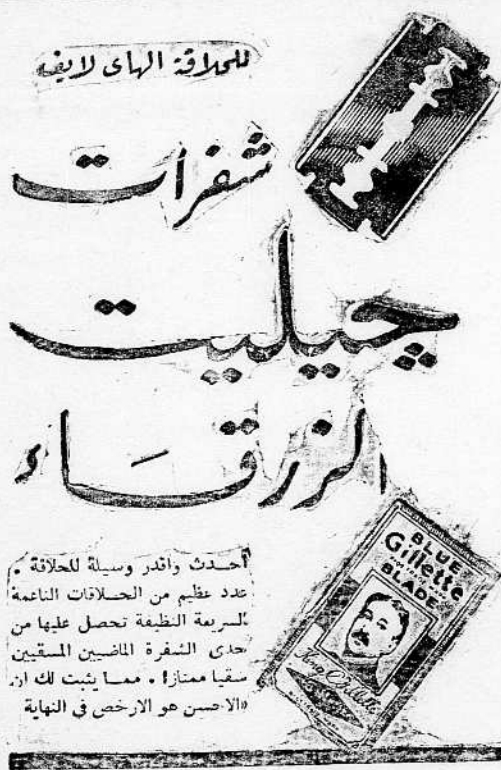 للحلاقة الهاى لايف
شفرات
چيليت
الزرقاء
أحدث واقدر وسيلة للحلاقة .
عدد عظيم من الحلاقات الناعمة
السريعة النظيفة تحصل عليها من
حدى الشفرة الماضيين المسقيين
سقيا ممتازا . مما يثبت لك ان
«الاحسن هو الارخص في النهاية
BLUE
Gillette
BLADE
King C. Gillette